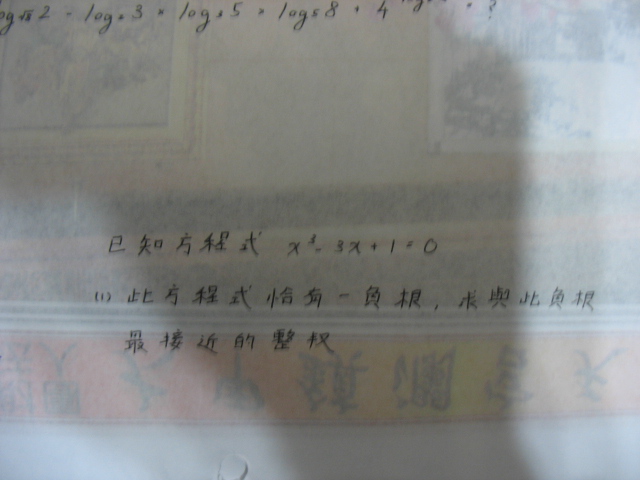 2 - log₂3 × log₃5 × log₅8 + 4 = ?
已知方程式 x³ - 3x + 1 = 0
(1) 此方程式恰有一負根, 求與此負根
最接近的整数